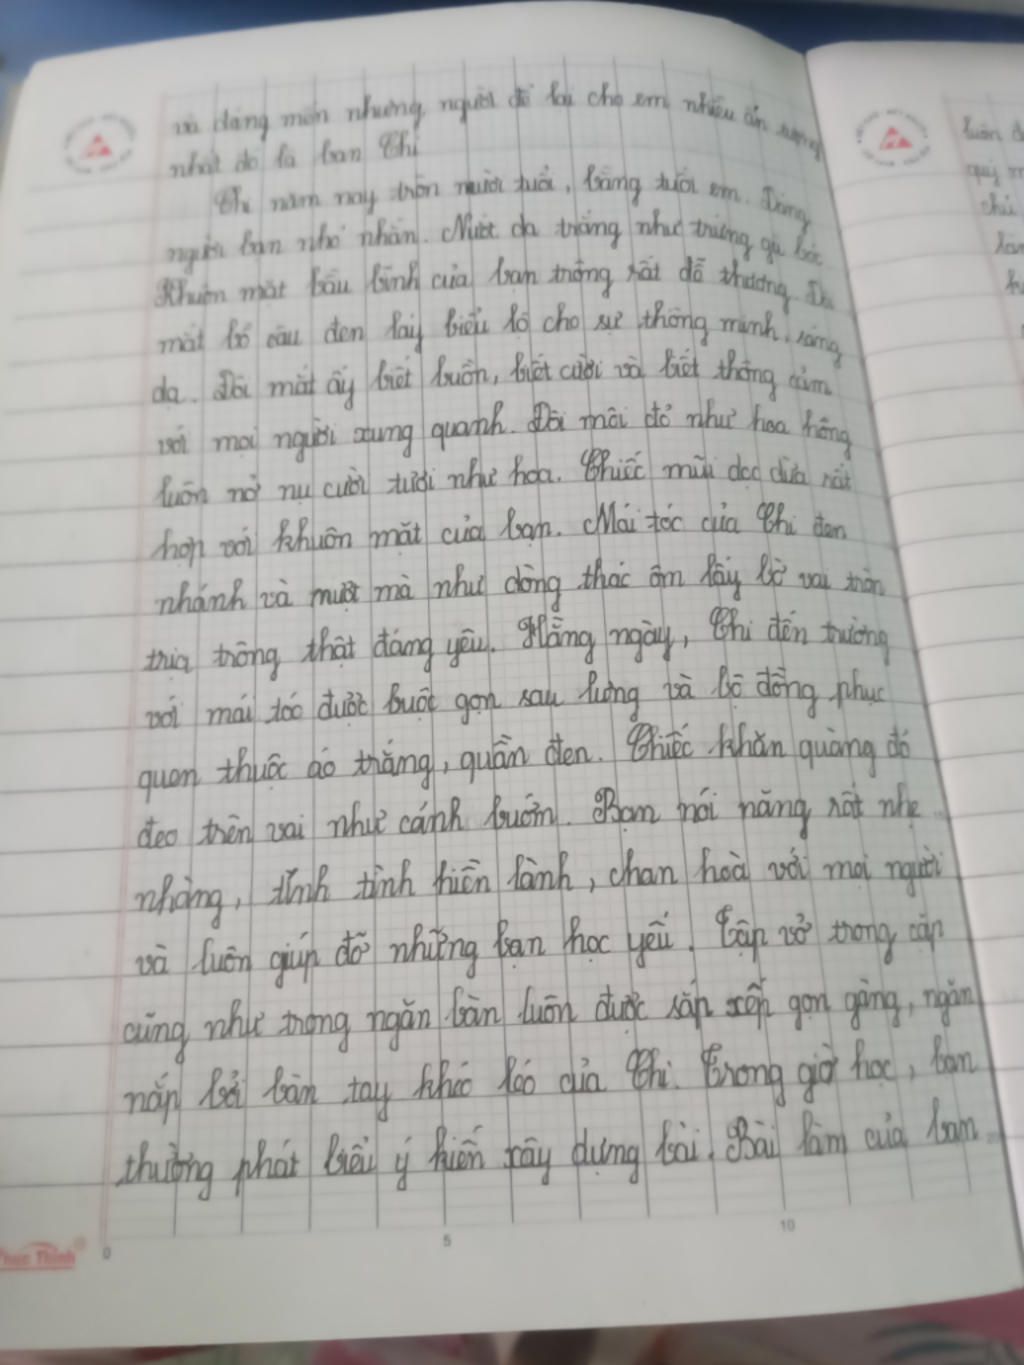 và đáng mến nhưng người để lại cho em nhiều ấn tượng
nhất đó là bạn Chi
Chi năm nay tròn mười tuổi, bằng tuổi em. Dáng
người bạn nhỏ nhắn. Nước da trắng như trứng gà bóc
Khuôn mặt bầu bĩnh của bạn trông rất dễ thương. Đôi
mắt bồ câu đen láy biểu lộ cho sự thông minh, sáng
dạ. Đôi mắt ấy biết buồn, biết cười và biết thông cảm
với mọi người xung quanh. Đôi môi đỏ như hoa hồng
luôn nở nụ cười tươi như hoa. Chiếc mũi dọc dừa rất
hợp với khuôn mặt của bạn. Mái tóc của Chi đen
nhánh và mượt mà như dòng thác ôm lấy bờ vai tròn
trịa trông thật đáng yêu. Hằng ngày, Chi đến trường
với mái tóc được buộc gọn sau lưng và bộ đồng phục
quen thuộc áo trắng, quần đen. Chiếc khăn quàng đỏ
đeo trên vai như cánh bướm. Bạn nói năng rất nhẹ
nhàng, tính tình hiền lành, chan hoà với mọi người
và luôn giúp đỡ những bạn học yếu. Tập vở trong cặp
cũng như trong ngăn bàn luôn được sắp xếp gọn gàng, ngăn
nắp bởi bàn tay khéo léo của Chi. Trong giờ học, bạn
thường phát biểu ý kiến xây dựng bài. Bài làm của bạn
0 5 10